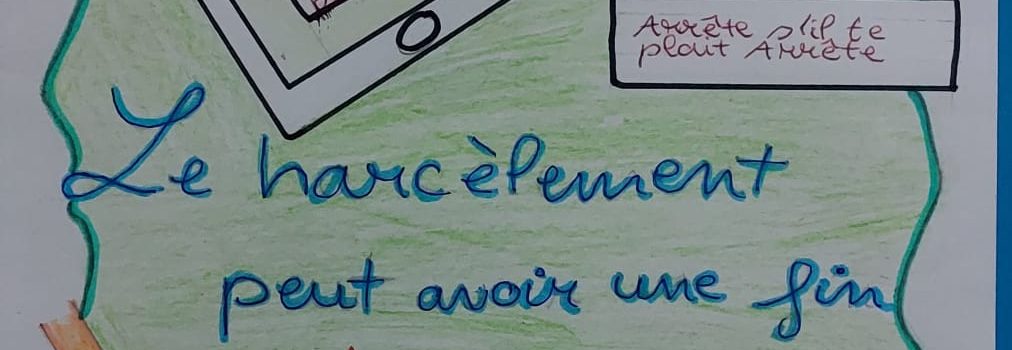 Arrête s'il te
plait Arrête
Le harcèlement
peut avoir une fin